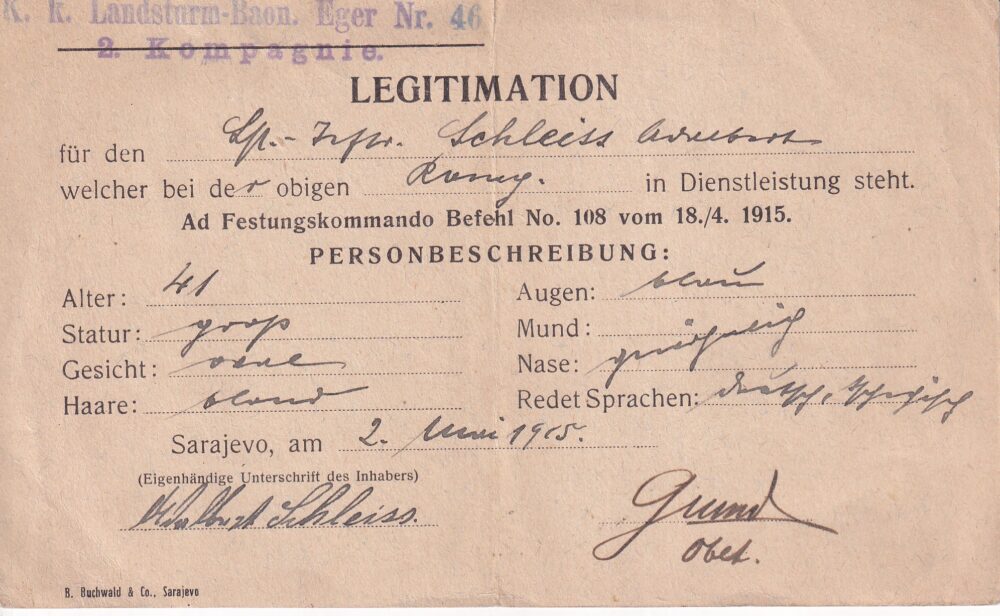 K. k. Landsturm-Baon. Eger Nr. 46
2. Kompagnie.
LEGITIMATION
für den Lst.-Infst. Schleiss Adalbert
welcher bei der obigen Komp. in Dienstleistung steht.
Ad Festungskommando Befehl No. 108 vom 18./4. 1915.
PERSONBESCHREIBUNG:
Alter: 41
Augen: blau
Statur: groß
Mund:
Gesicht: oval
Nase: gewöhnlich
Haare: blond
Redet Sprachen: deutsch, tschechisch
Sarajevo, am 2. Mai 1915.
(Eigenhändige Unterschrift des Inhabers)
Adalbert Schleiss.
Grund
Oblt.
B. Buchwald & Co., Sarajevo